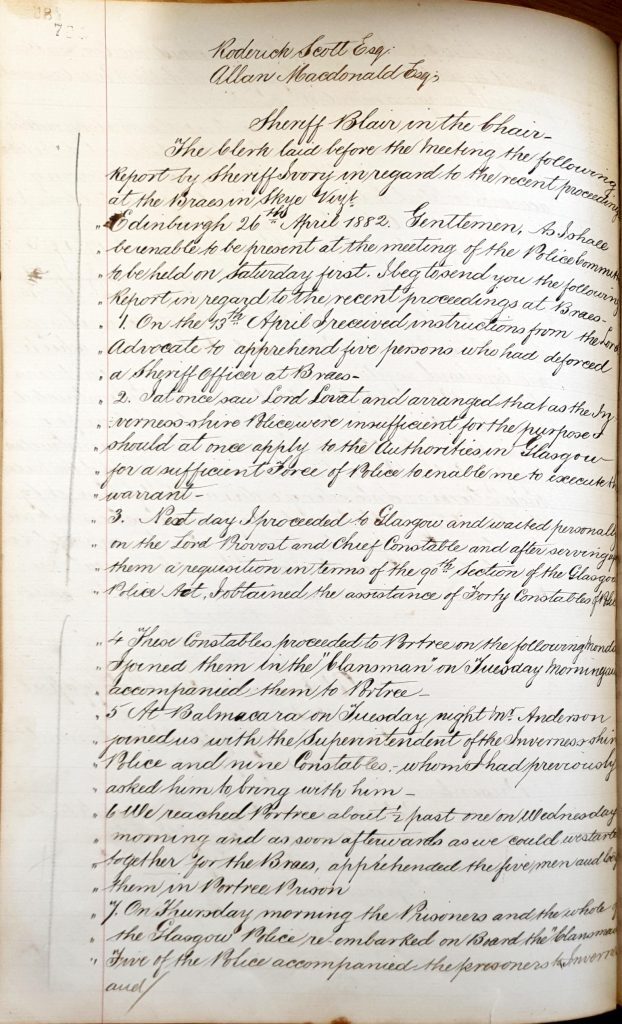 Roderick Scott Esq.
Allan Macdonald Esq;
Sheriff Blair in the Chair-
"The Clerk laid before the Meeting the following
Report by Sheriff Ivory in regard to the recent proceedings
at the Braes in Skye Vizt.
"Edinburgh 26th April 1882. Gentlemen, As I shall
" be unable to be present at the meeting of the Police Committ
" to be held on Saturday first. I beg to send you the following
" Report in regard to the recent proceedings at Braes-
" 1. On the 13th April I received instructions from the Lord
" Advocate to apprehend five persons who had deforced
" a Sheriff Officer at Braes-
" 2. I at once saw Lord Lovat and arranged that as the In
" vernessshire Police were insufficient for the purpose I
" should at once apply to the Authorities in Glasgow
" for a sufficient Force of Police to enable me to execute th
" warrant-
" 3. Next day I proceeded to Glasgow and waited personally
" on the Lord Provost and Chief Constable and after serving
" them a requisition in terms of the 90th Section of the Glasgow
" Police Act, I obtained the assistance of Forty Constables of
" 4 These Constables proceeded to Portree on the following Monda
" I joined them in the "Clansman" on Tuesday Morning
" accompanied them to Portree-
" 5 At Balmacara on Tuesday night Mr. Anderson
" joined us with the Superintendent of the Inverness shire
" Police and nine Constables,- whom I had previously
" asked him to bring with him-
" 6 We reached Portree about ½ past one on Wednesday
" morning and as soon afterwards as we could we starte
" together for the Braes, apprehended the five men and
" them in Portree Prison
" 7. On Thursday morning the Prisoners and the whole of
" the Glasgow Police re-embarked on Board the "Clansman
" Five of the Police accompanied the prisoners to Inverne
and/